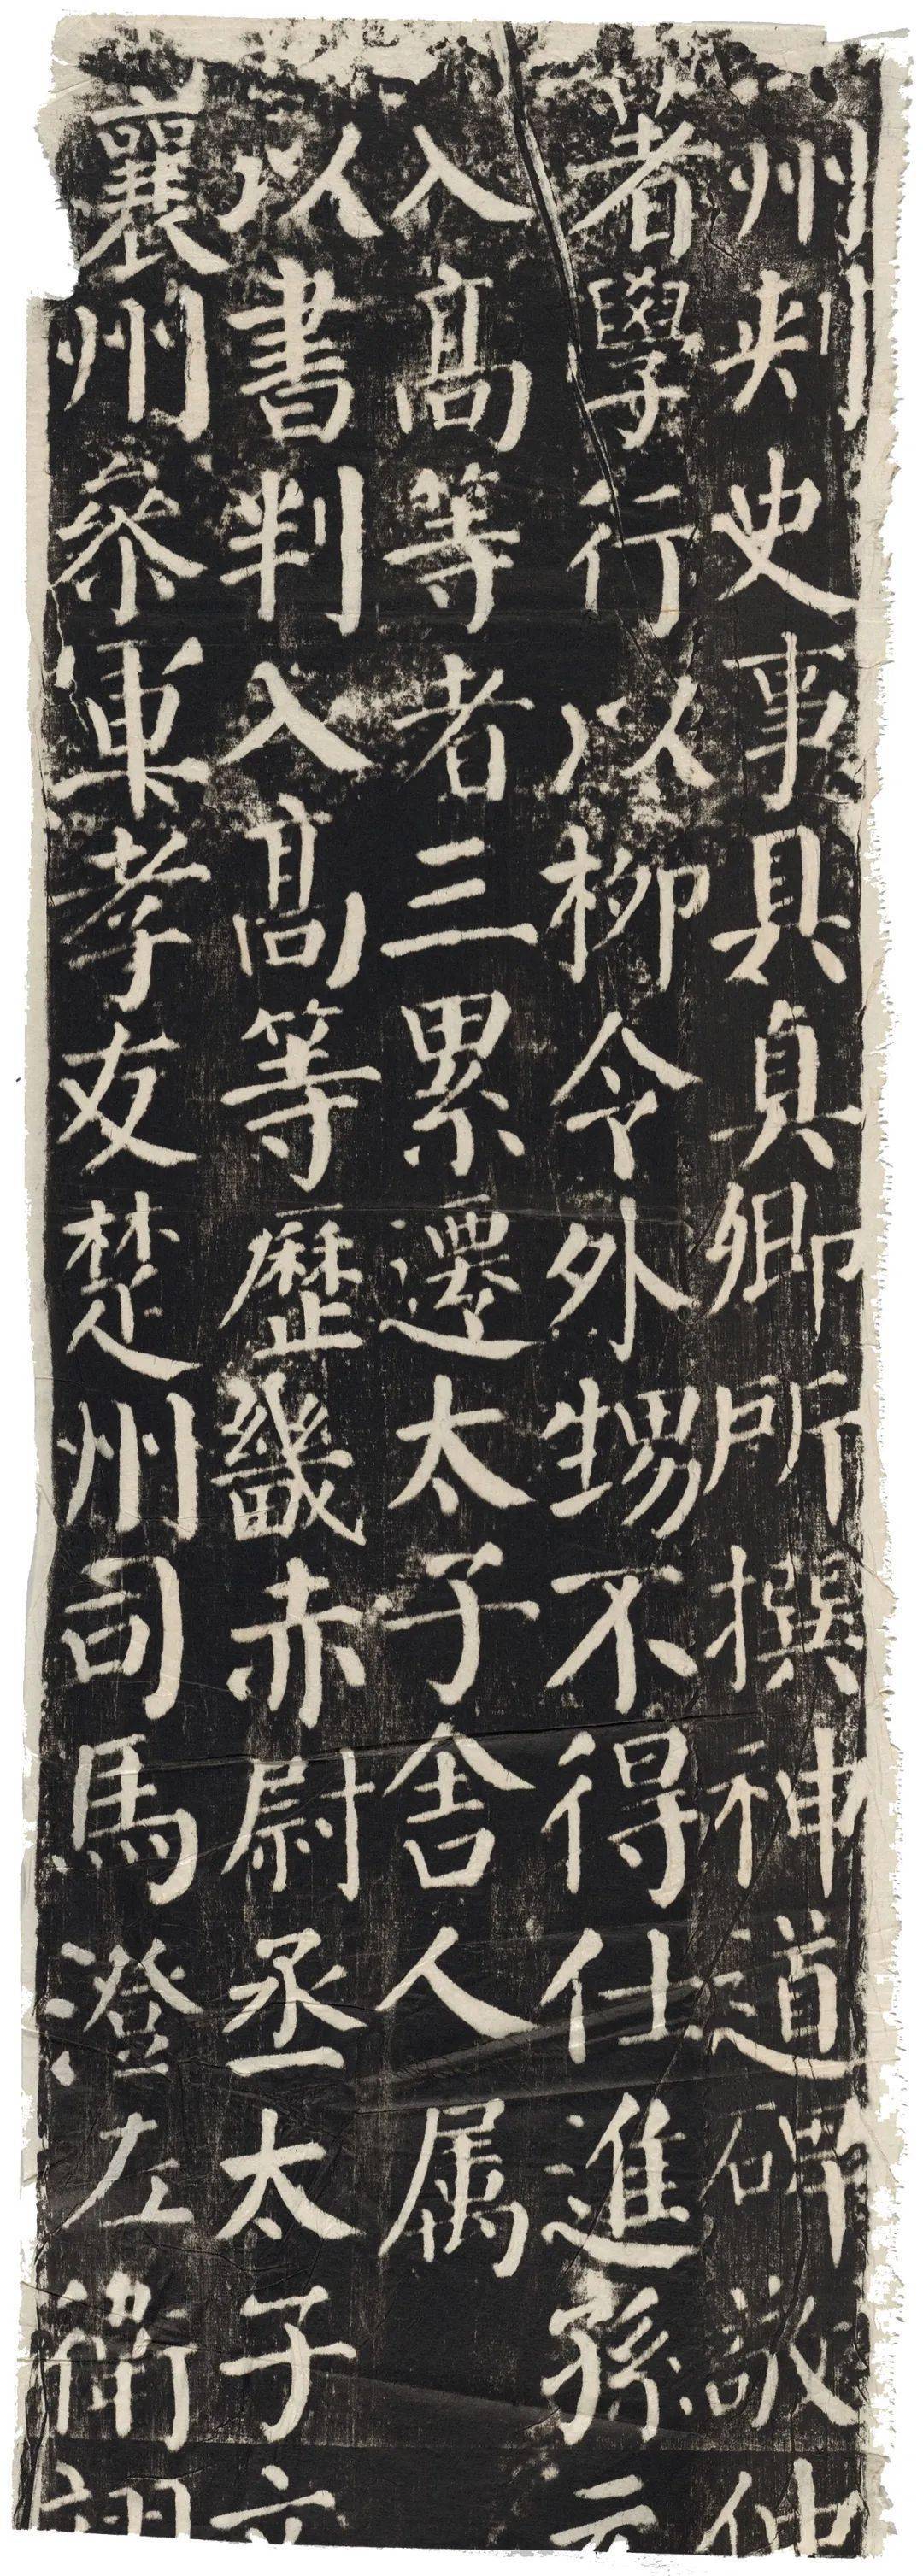 州刺史事具真卿所撰神道碑敬仲
著學行以柳令外甥不得仕進孫元
入高等者三累遷太子舍人属
以書判入高等歷畿赤尉丞太子文
襄州參軍孝友楚州司馬澄左衛翊